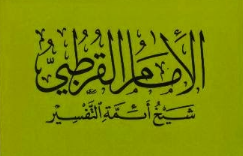 الإمام القرطبي
شيخ أئمة التفسير